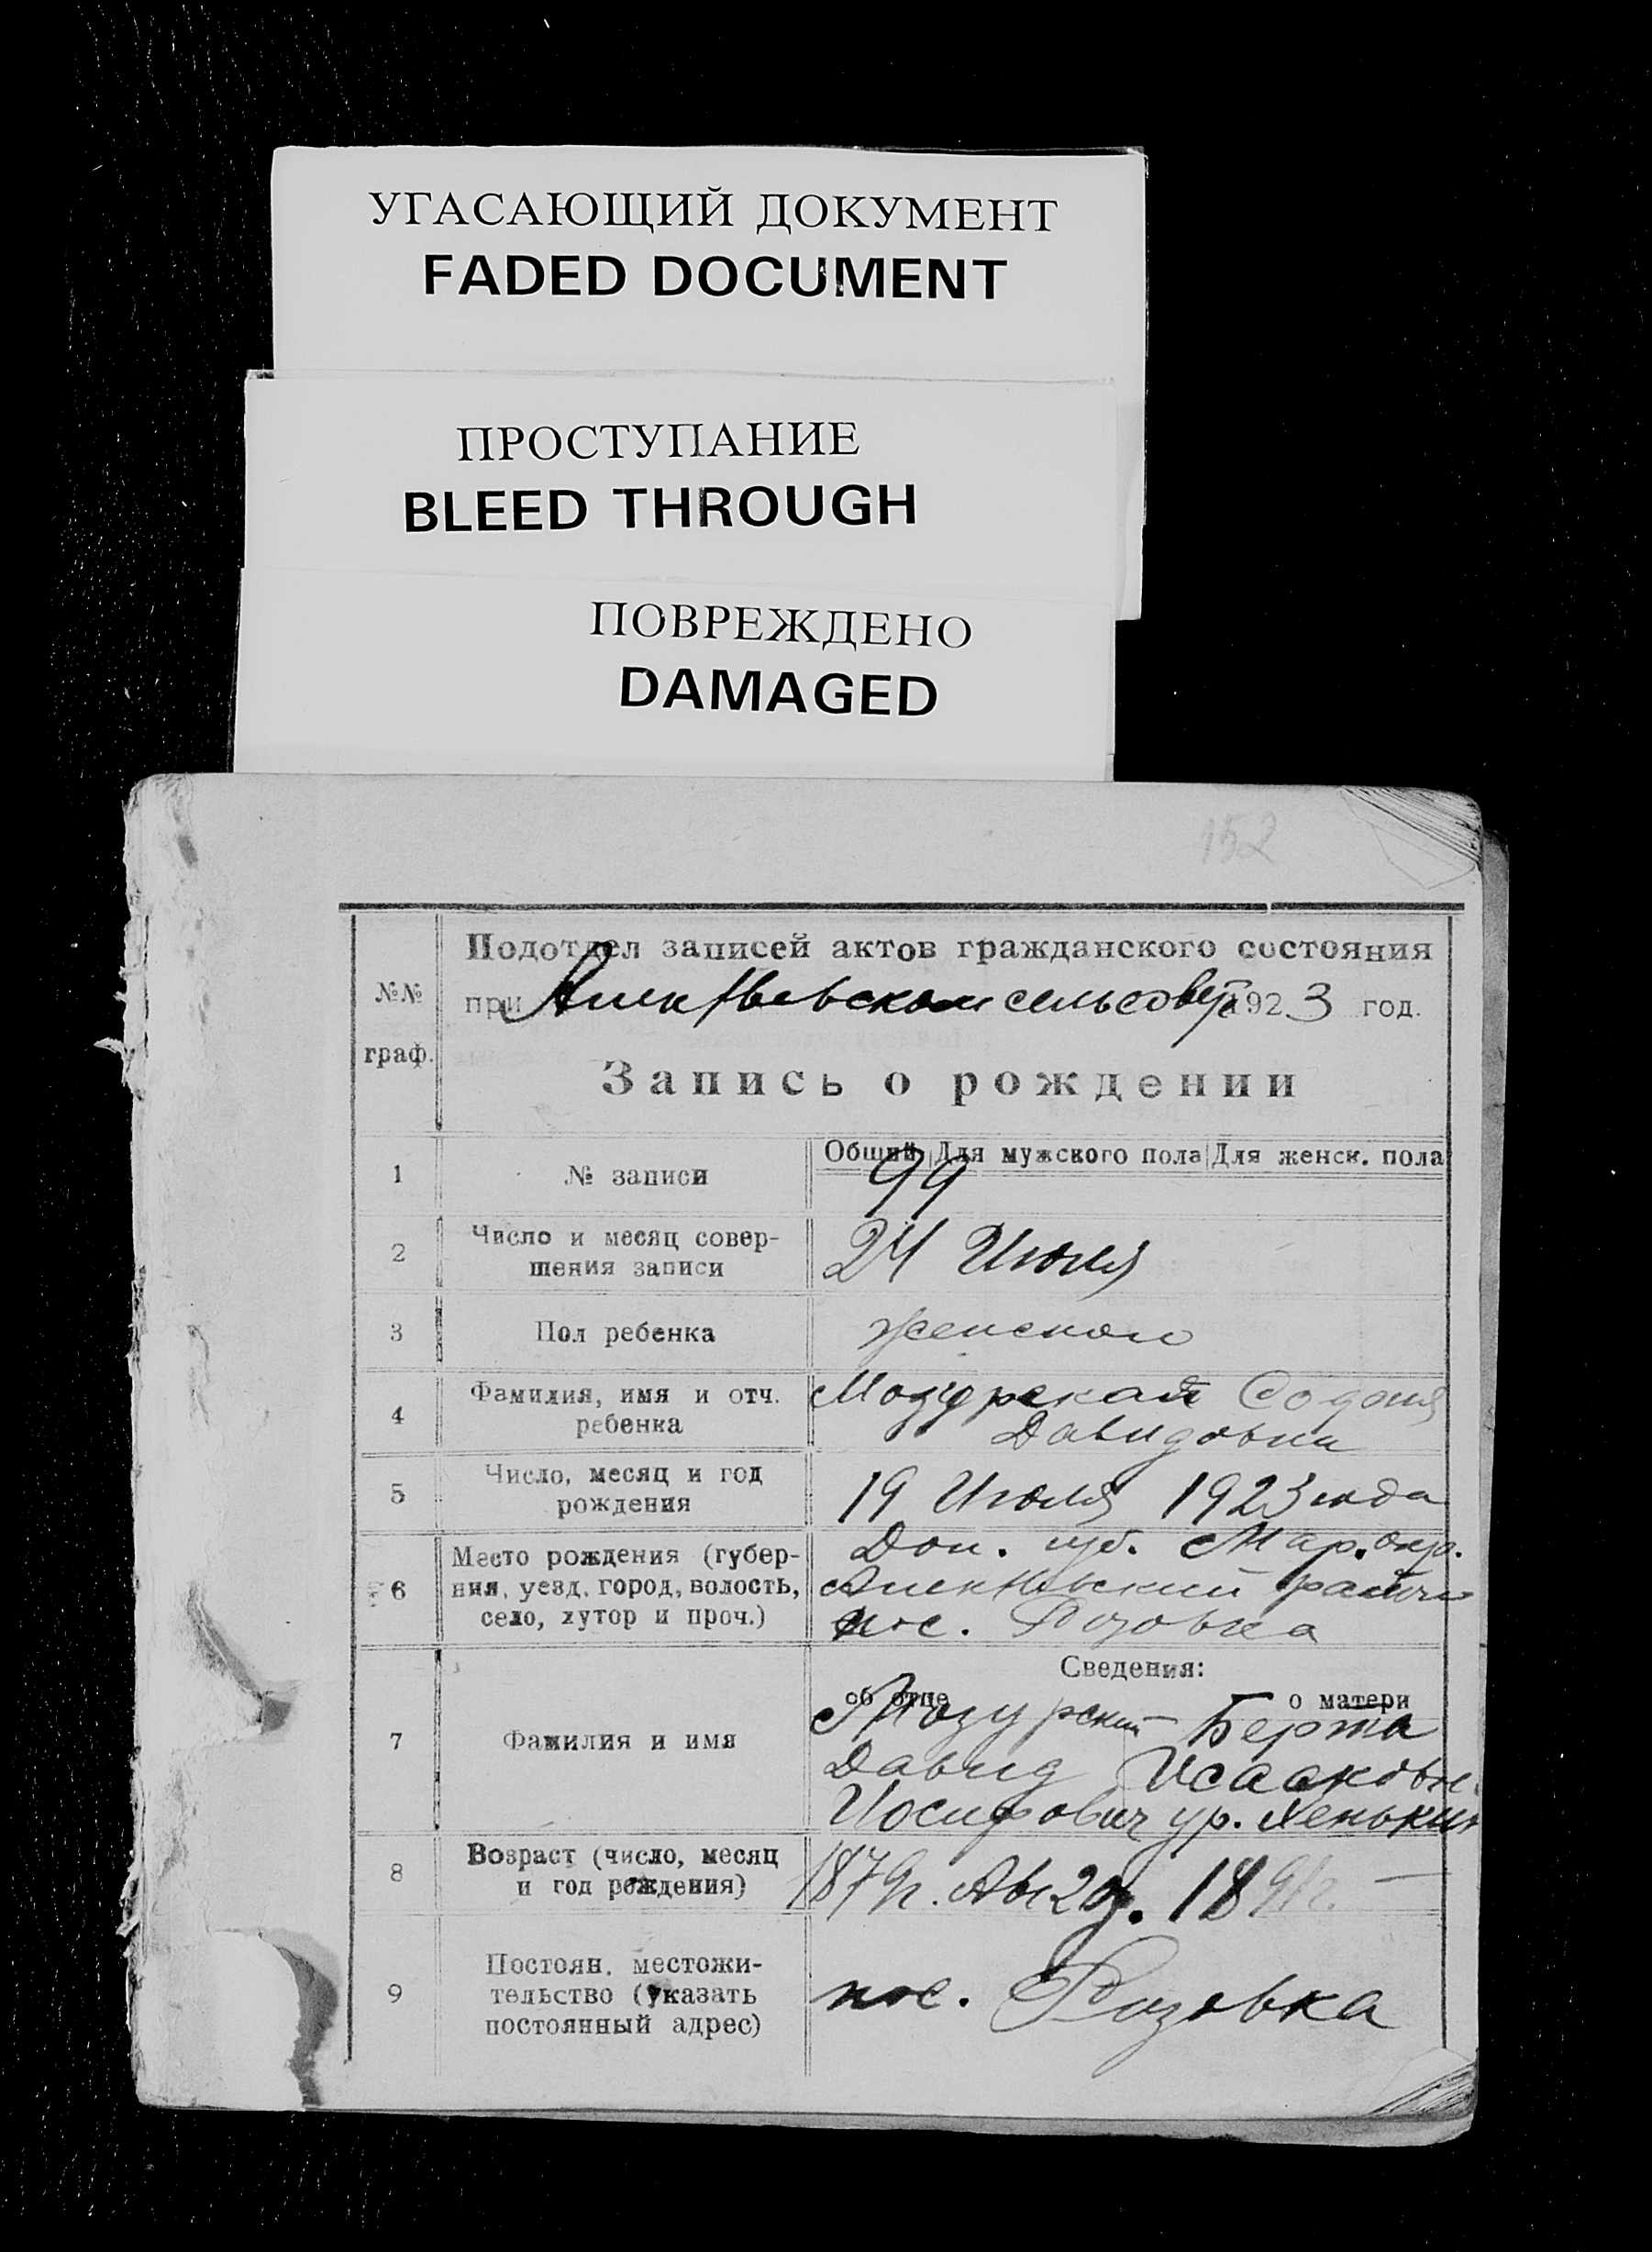 УГАСАЮЩИЙ ДОКУМЕНТ
FADED DOCUMENT
ПРОСТУПАНИЕ
BLEED THROUGH
ПОВРЕЖДЕНО
DAMAGED
152
№№ граф.
Подотдел записей актов гражданского состояния
при сельсовет 1923 год.
Запись о рождении
Общий Для мужского пола Для женск. пола
1 № записи 99
2 Число и месяц совер-
шения записи 24 Июля
3 Пол ребенка женской
4 Фамилия, имя и отч.
ребенка Мозурская
Давидовна
5 Число, месяц и год
рождения 19 Июля 1923 года
6 Место рождения (губер-
ния, уезд, город, волость,
село, хутор и проч.) Дон. губ. Мар. окр.
район
пос. Розовка
Сведения:
об отце о матери
7 Фамилия и имя Мозурский Берта
Давид Исааковн.
Иосифович ур.
8 Возраст (число, месяц
и год рождения) 1879г.
9 Постоян. местожи-
тельство (указать
постоянный адрес) пос. Розовка